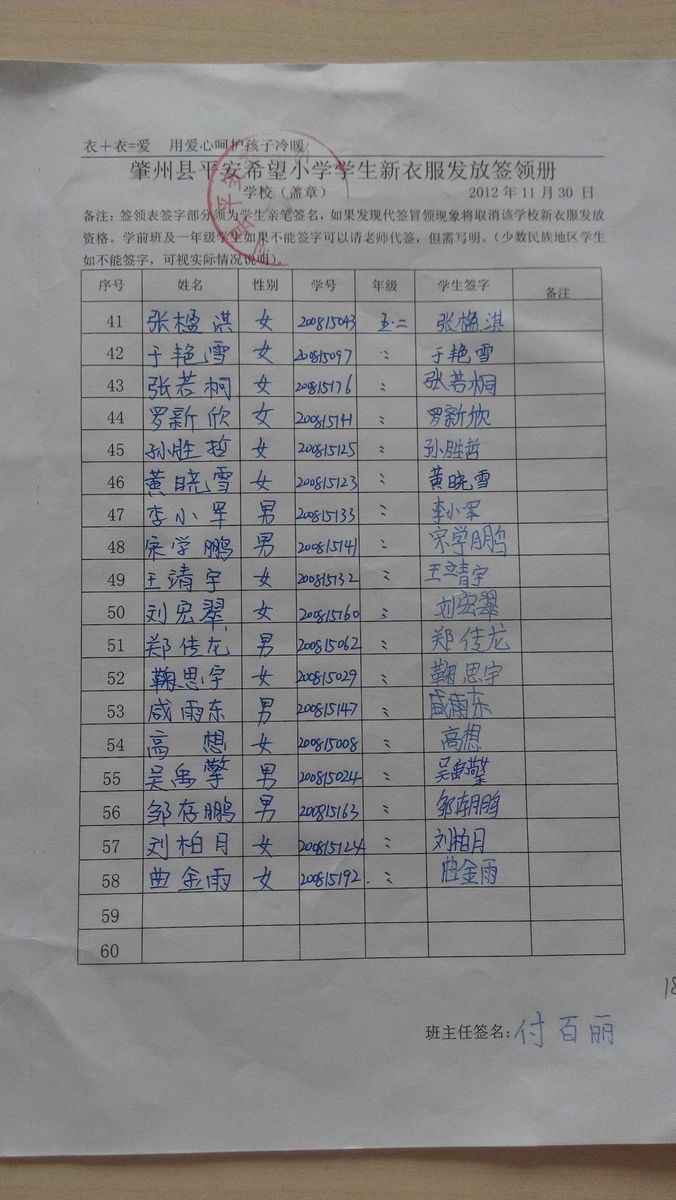 衣+衣=爱 用爱心呵护孩子冷暖
肇州县平安希望小学学生新衣服发放签领册
学校（盖章） 2012年11月30日
备注：签领表签字部分须为学生亲笔签名，如果发现代签冒领现象将取消该学校新衣服发放
资格。学前班及一年级学生如果不能签字可以请老师代签，但需写明。（少数民族地区学生
如不能签字，可视实际情况说明）。
序号 姓名 性别 学号 年级 学生签字 备注
41 张楹淇 女 200815043 五.二 张楹淇
42 于艳雪 女 200815097 〃 于艳雪
43 张若桐 女 200815176 〃 张若桐
44 罗新欣 女 200815141 〃 罗新欣
45 孙胜哲 女 200815125 〃 孙胜哲
46 黄晓雪 女 200815123 〃 黄晓雪
47 李小军 男 200815133 〃 李小军
48 宋学鹏 男 200815141 〃 宋学鹏
49 王靖宇 女 200815132 〃 王靖宇
50 刘宏翠 女 200815160 〃 刘宏翠
51 郑传龙 男 200815062 〃 郑传龙
52 鞠思宇 女 200815029 〃 鞠思宇
53 咸雨东 男 200815147 〃 咸雨东
54 高想 女 200815008 〃 高想
55 吴禹擎 男 200815024 〃 吴禹擎
56 邹存鹏 男 200815163 〃 邹存鹏
57 刘柏月 女 200815124 〃 刘柏月
58 曲金雨 女 200815192 〃 曲金雨
59
60
18
班主任签名:付百丽